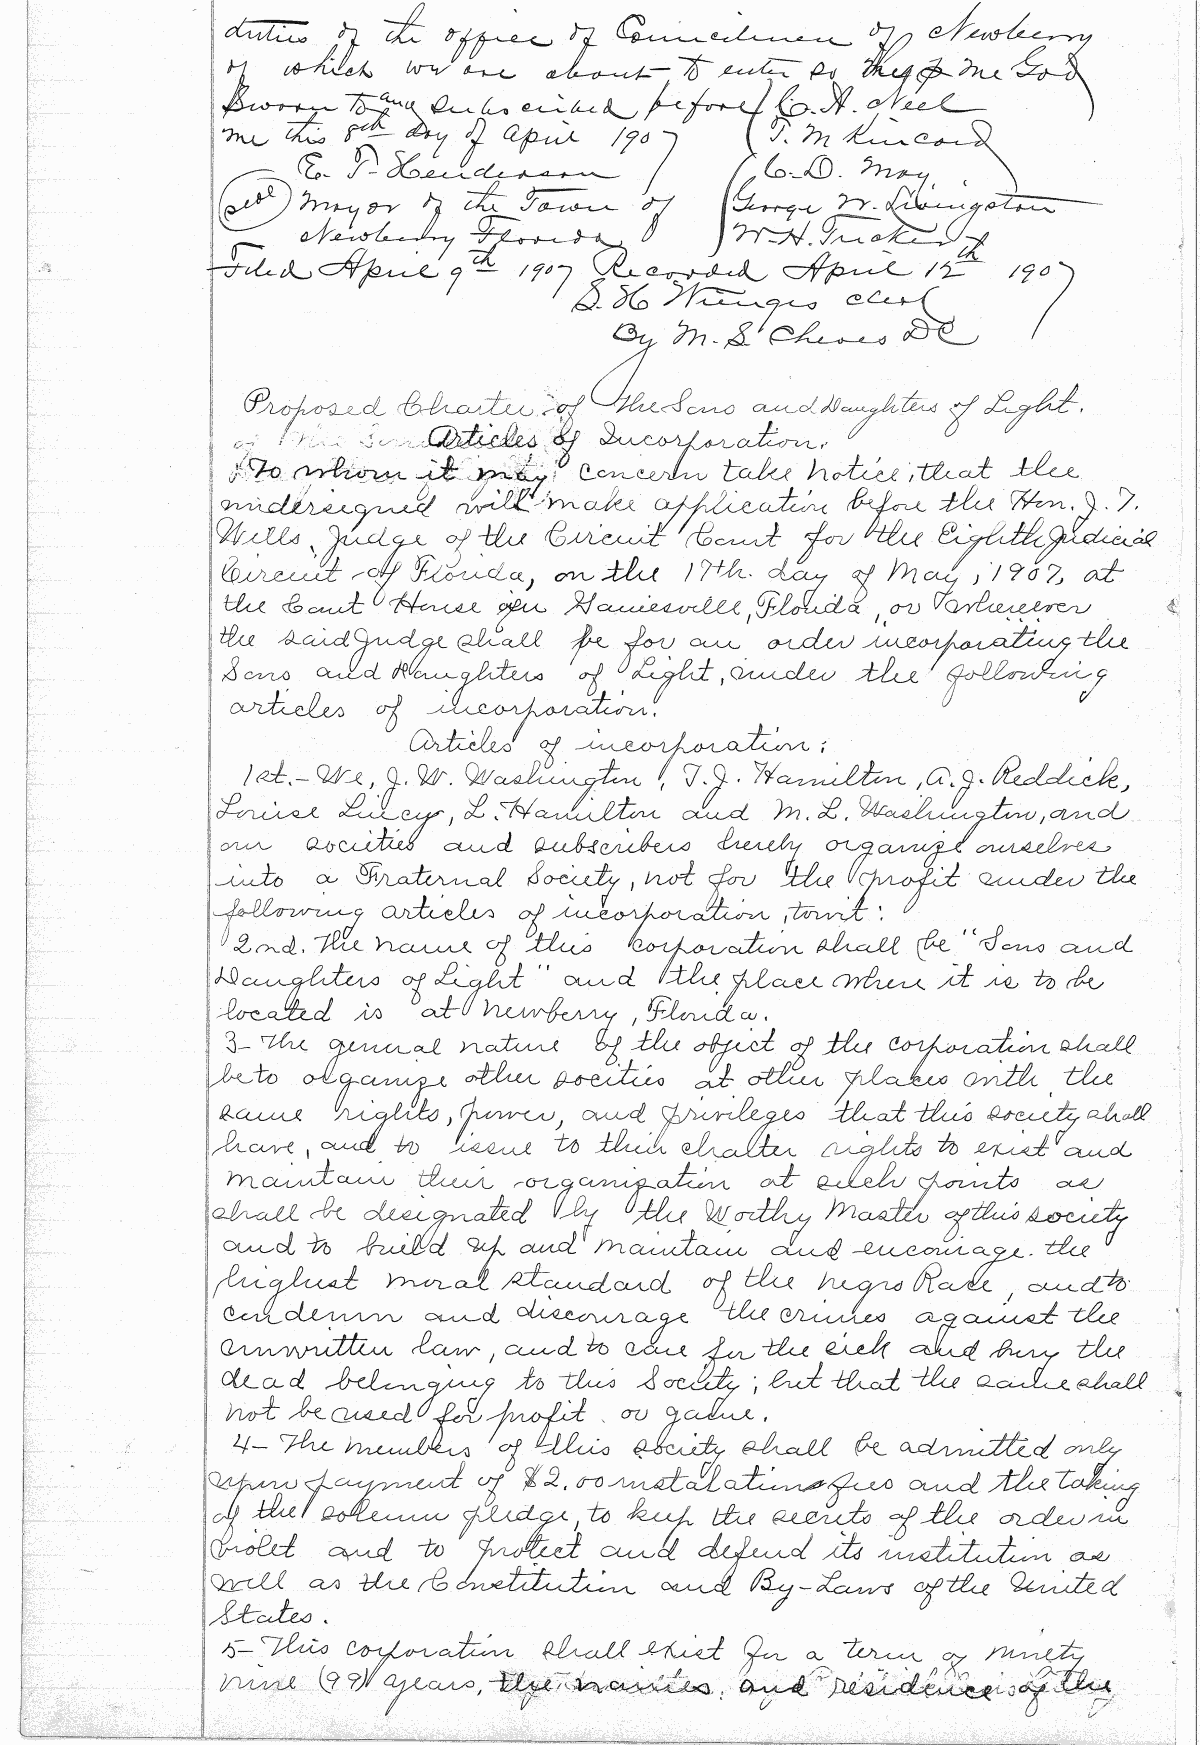 duties of the office of Councilmen of Newberry
of which we are about to enter so help me God
Sworn to and subscribed before C. A. Neel
me this 8th day of April 1907 T. M Kincard
E. T. Henderson C. D. May
Seal Mayor of the Town of George W. Livingston
Newberry Florida W. H. Tucker
Filed April 9th 1907 Recorded April 12th 1907
S. H Wienges Clerk
By M. S. Cheves DC
Proposed Charter of the Sons and Daughters of Light.
Articles of Incorporation.
To whom it may concern take notice, that the
undersigned will make application before the Hon. J. T.
Wills, Judge of the Circuit Court for the Eighth Judicial
Circuit of Florida, on the 17th. day of May, 1907, at
the Court House in Gainesville, Florida, or wherever
the said Judge shall be for an order incorporating the
Sons and Daughters of Light, under the following
articles of incorporation.
Articles of incorporation:
1st.- We, J. W. Washington, T. J. Hamilton, A. J. Reddick,
Louise Lucy, L. Hamilton and M. L. Washington, and
our societies and subscribers hereby organize ourselves
into a Fraternal Society, not for the profit under the
following articles of incorporation, towit:
2nd. The name of this corporation shall be "Sons and
Daughters of Light" and the place where it is to be
located is at Newberry, Florida.
3- The general nature of the object of the corporation shall
be to organize other socities at other places with the
same rights, power, and privileges that this society shall
have, and to issue to their charter rights to exist and
maintain their organization at such points as
shall be designated by the Worthy Master of this society
and to build up and maintain and encourage the
highest moral standard of the negro Race, and to
condemn and discourage the crimes against the
unwritten law, and to care for the sick and bury the
dead belonging to this Society; but that the same shall
not be used for profit or game.
4- The members of this society shall be admitted only
upon payment of $2.00 instalation fees and the taking
of the solemn pledge, to keep the secrets of the order in
violet and to protect and defend its institution as
will as the Constitution and By-Laws of the United
States.
5- This corporation shall exist for a term of ninety
nine (99) years, the names, and residence of the